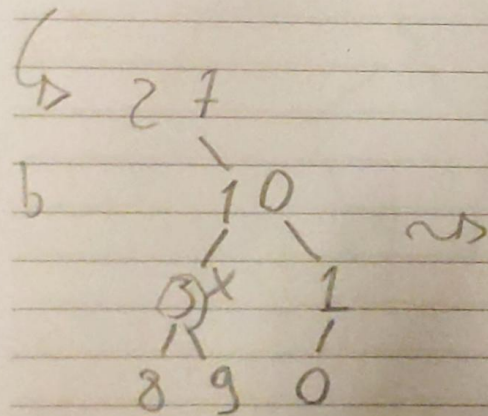 27
b 10
3 x 1
8 9 0